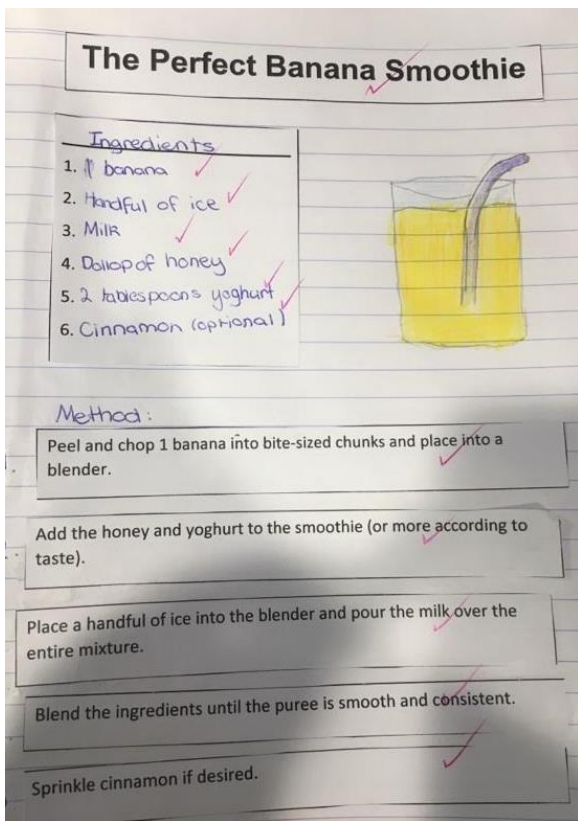 The Perfect Banana Smoothie
Ingredients
1. 1 banana
2. Handful of ice
3. Milk
4. Dollop of honey
5. 2 tablespoons yoghurt
6. Cinnamon (optional)
Method:
Peel and chop 1 banana into bite-sized chunks and place into a
blender.
Add the honey and yoghurt to the smoothie (or more according to
taste).
Place a handful of ice into the blender and pour the milk over the
entire mixture.
Blend the ingredients until the puree is smooth and consistent.
Sprinkle cinnamon if desired.